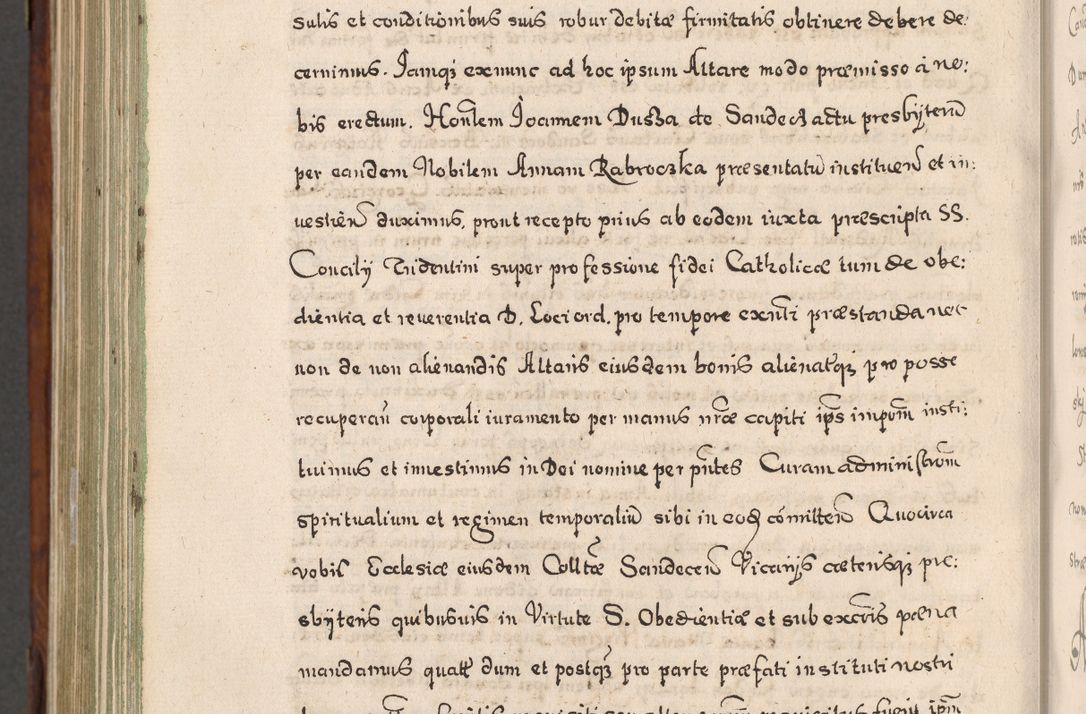 sulis et conditionibus suis robur debitæ firmitatis obtinere debere de:
cernimus. Jamq₃ exnunc ad hoc ipsum Altare modo præmisso à no:
bis erectum. Hon̄lem Joannem Duszа de Sandecz actu presbyterū
per eandem Nobilem Annam Rabroczka præsentatū instituen̄ et in:
vestien̄ duximus, prout recepto prius ab eodem iuxta præscripta SS.
Concilij Tridentini super professione fidei Catholicæ tum de obe:
dientia et reverentia D. Loci ord. pro tempore exn̄ti præstanda nec
non de non alienandis Altaris eiusdem bonis alienatisq₃ pro posse
recuperan̄ corporali iuramento per manus nr̄æ capiti ip̄s impom̄ insti:
tuimus et investimus in Dei nomine per pn̄tes Curam administrom̄
spiritualium et regimen temporaliū sibi in eod cōmitten̄ Quocirca
vobis Ecclesiæ eiusdem Colltæ Sandecen̄ Vicarijs cæterisq₃ pre:
sbyteris quibusvis in Virtute S. Obedientiæ et sub excōis pœna
mandamus quatt̄ dum et postq₃ pro parte præfati instituti nostri